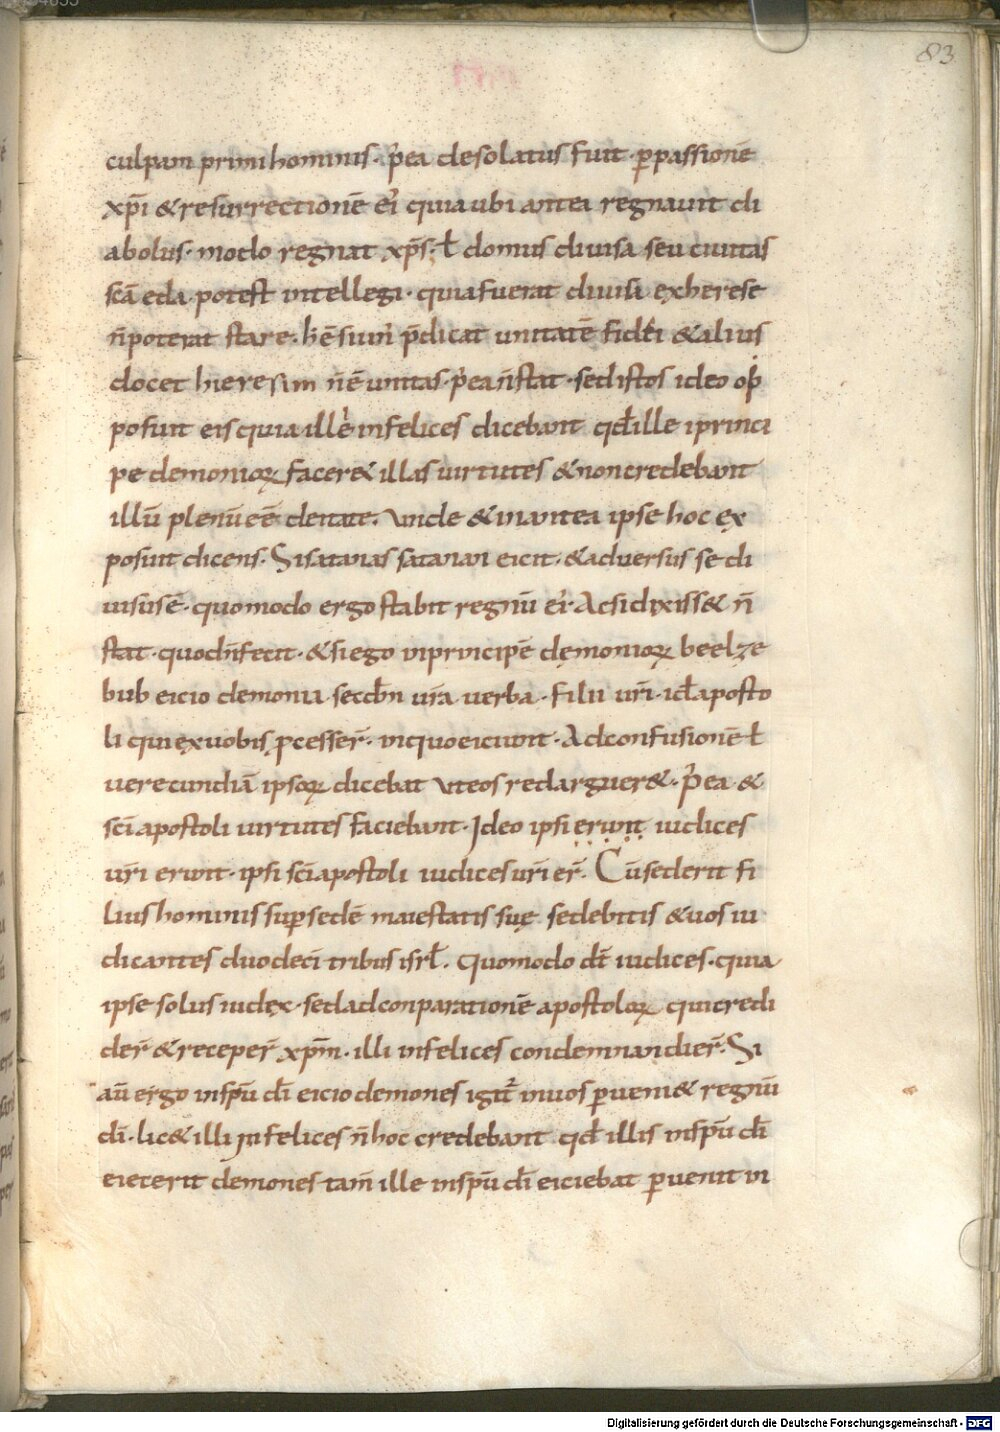 83
culpam primi hominis· p̄ea desolatus fuit· ꝑpassionē
xp̄i & resurrectionē ei' quia ubi antea regnauit di
abolus· modo regnat xp̄s· ł domus diuisa seu ciuitas
scā ecla· potest intellegi· quia fuerat diuisa ex herese
n̄ poterat stare· h̄ ē si un' p̄dicat unitatē fidei & alius
docet hieresim n̄ ē unitas· p̄ea n̄ stat· sed istos ideo op
posuit eis quia ill' infelices dicebant qđ ille i princi
pe demonioꝝ facer& illas uirtutes & non credebant
illū plenū eē deitate· Unde & in antea ipse hoc ex
posuit dicens· Si satanas satanan eicit· & aduersus se di
uisus ē· quomodo ergo stabit regnū ei'· Ac si dixiss& n̄
stat· quod n̄ fecit· & si ego in principē demonioꝝ beelze
bub eicio demonia secđn ur̄a uerba· filii ur̄i· iđ aposto
li qui ex uobis ꝓcesser̄· in quo eiciunt· Ad confusionē ł
uerecundiā ipsoꝝ dicebat ut eos redarguer&· p̄ea &
sc̄i apostoli uirtutes faciebant· Ideo ipsi erunt iudices
ur̄i erunt· ipsi sc̄i apostoli iudices ur̄i er̄· Cū sederit fi
lius hominis suꝑ sedē maiestatis suę sedebitis & uos iu
dicantes duodeci tribus isrł· Quomodo dt̄ iudices· quia
ipse solus iudex· sed ad conparationē apostoloꝝ qui credi
der̄ & receper̄ xp̄m· illi infelices condemnandi er̄· Si
aū ergo in sp̄u di̅ eicio demones igit' in uos ꝑuen& regnū
di̅· lic& illi infelices n̄ hoc credebant qđ illis in sp̄u di̅
eiecerit demones tam̄ ille in sp̄u di̅ eiciebat ꝑuenit in
Digitalisierung gefördert durch die Deutsche Forschungsgemeinschaft - DFG